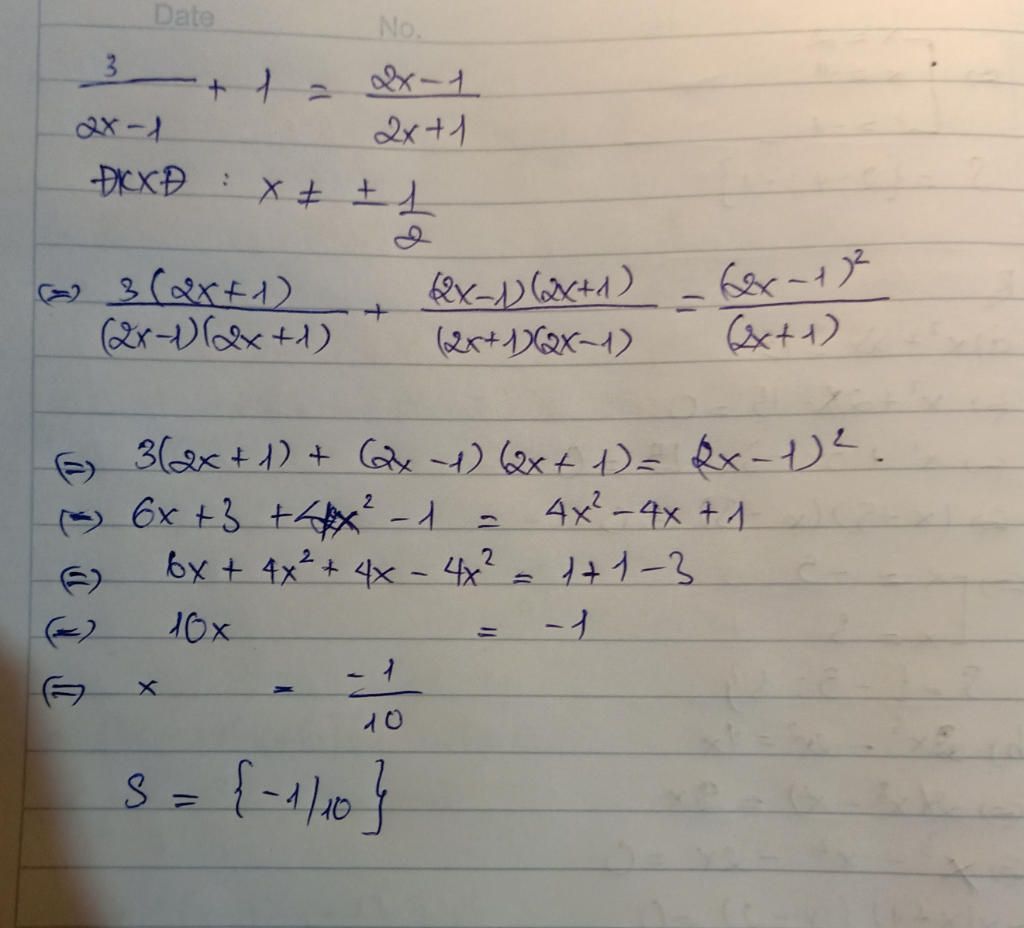 Date No.
3/(2x-1) + 1 = (2x-1)/(2x+1)
ĐKXĐ : x ≠ ± 1/2
(=) 3(2x+1)/((2x-1)(2x+1)) + (2x-1)(2x+1)/((2x+1)(2x-1)) = (2x-1)²/(2x+1)
(=) 3(2x+1) + (2x-1)(2x+1) = (2x-1)².
(=) 6x + 3 + 4x² - 1 = 4x² - 4x + 1
(=) 6x + 4x² + 4x - 4x² = 1 + 1 - 3
(=) 10x = -1
(=) x = -1/10
S = {-1/10}